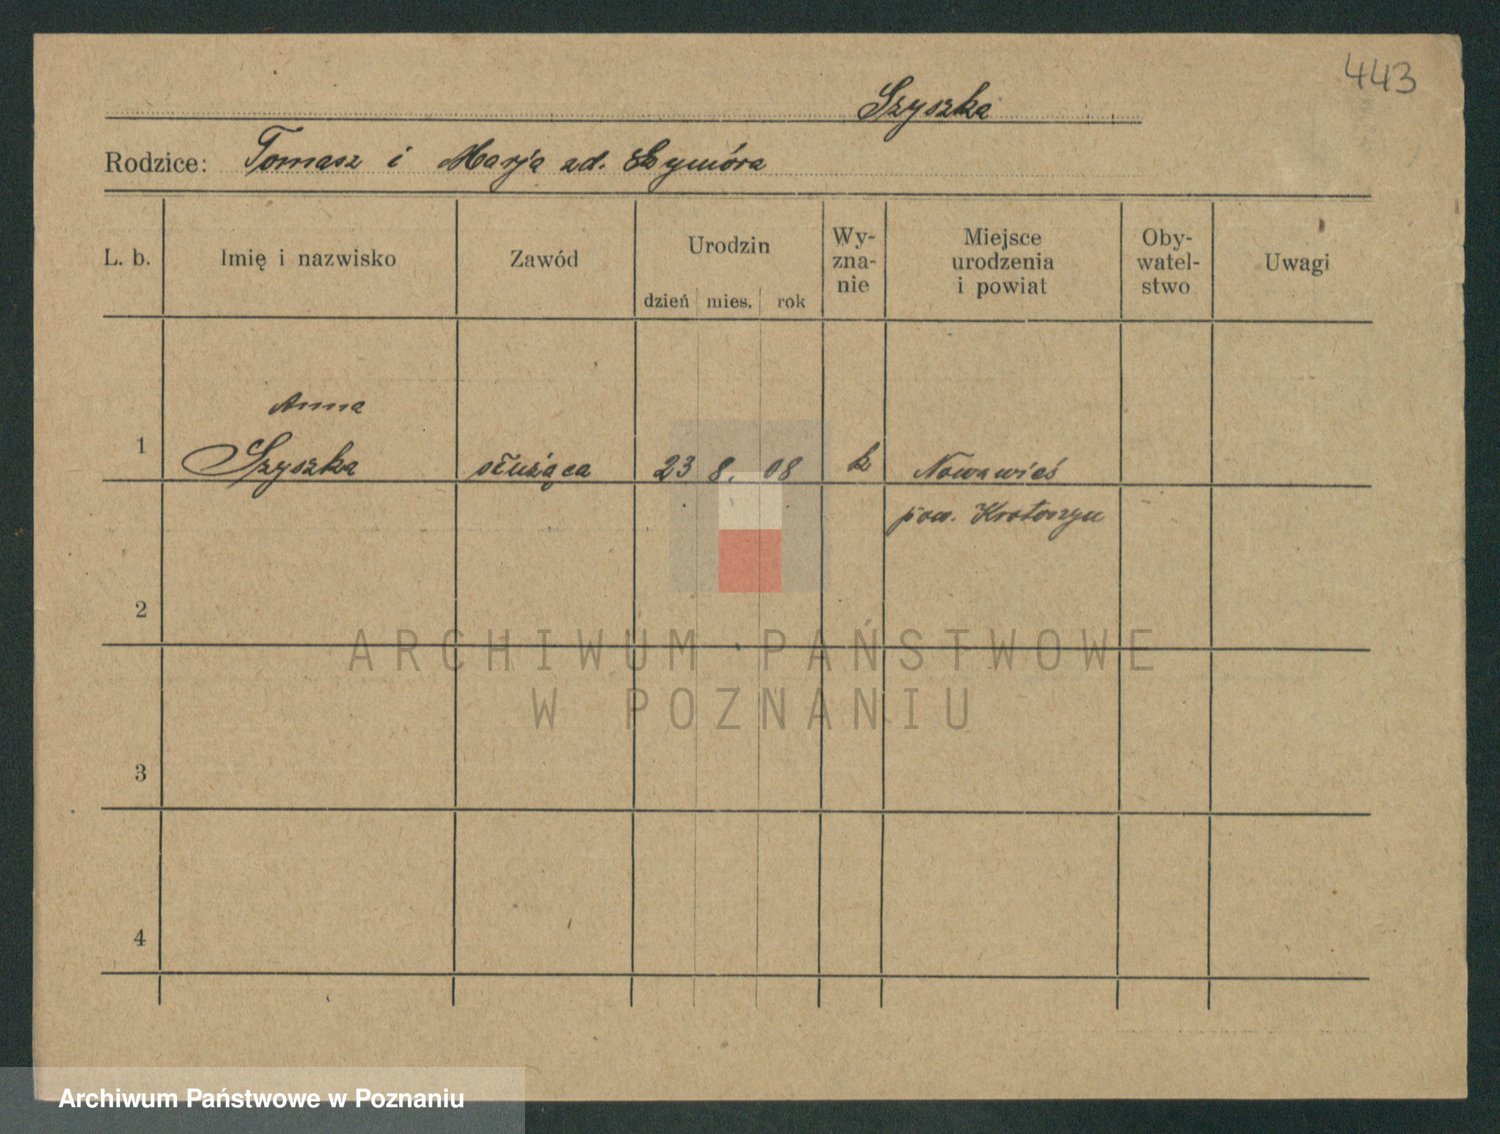 443
Szyszka
Rodzice: Tomasz i Marja zd.
L. b. Imię i nazwisko Zawód Urodzin dzień mies. rok Wy-zna-nie Miejsce urodzenia i powiat Oby-watel-stwo Uwagi
Anna
1 Szyszka służąca 23 8. 08 k Nowawieś
pow. Krotoszyn
2
ARCHIWUM PAŃSTWOWE
W POZNANIU
3
4
Archiwum Państwowe w Poznaniu